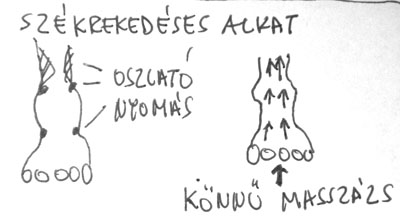 SZÉKREKEDÉSES ALKAT
OSZLATÓ
NYOMÁS
KÖNNŰ MASSZÁZS